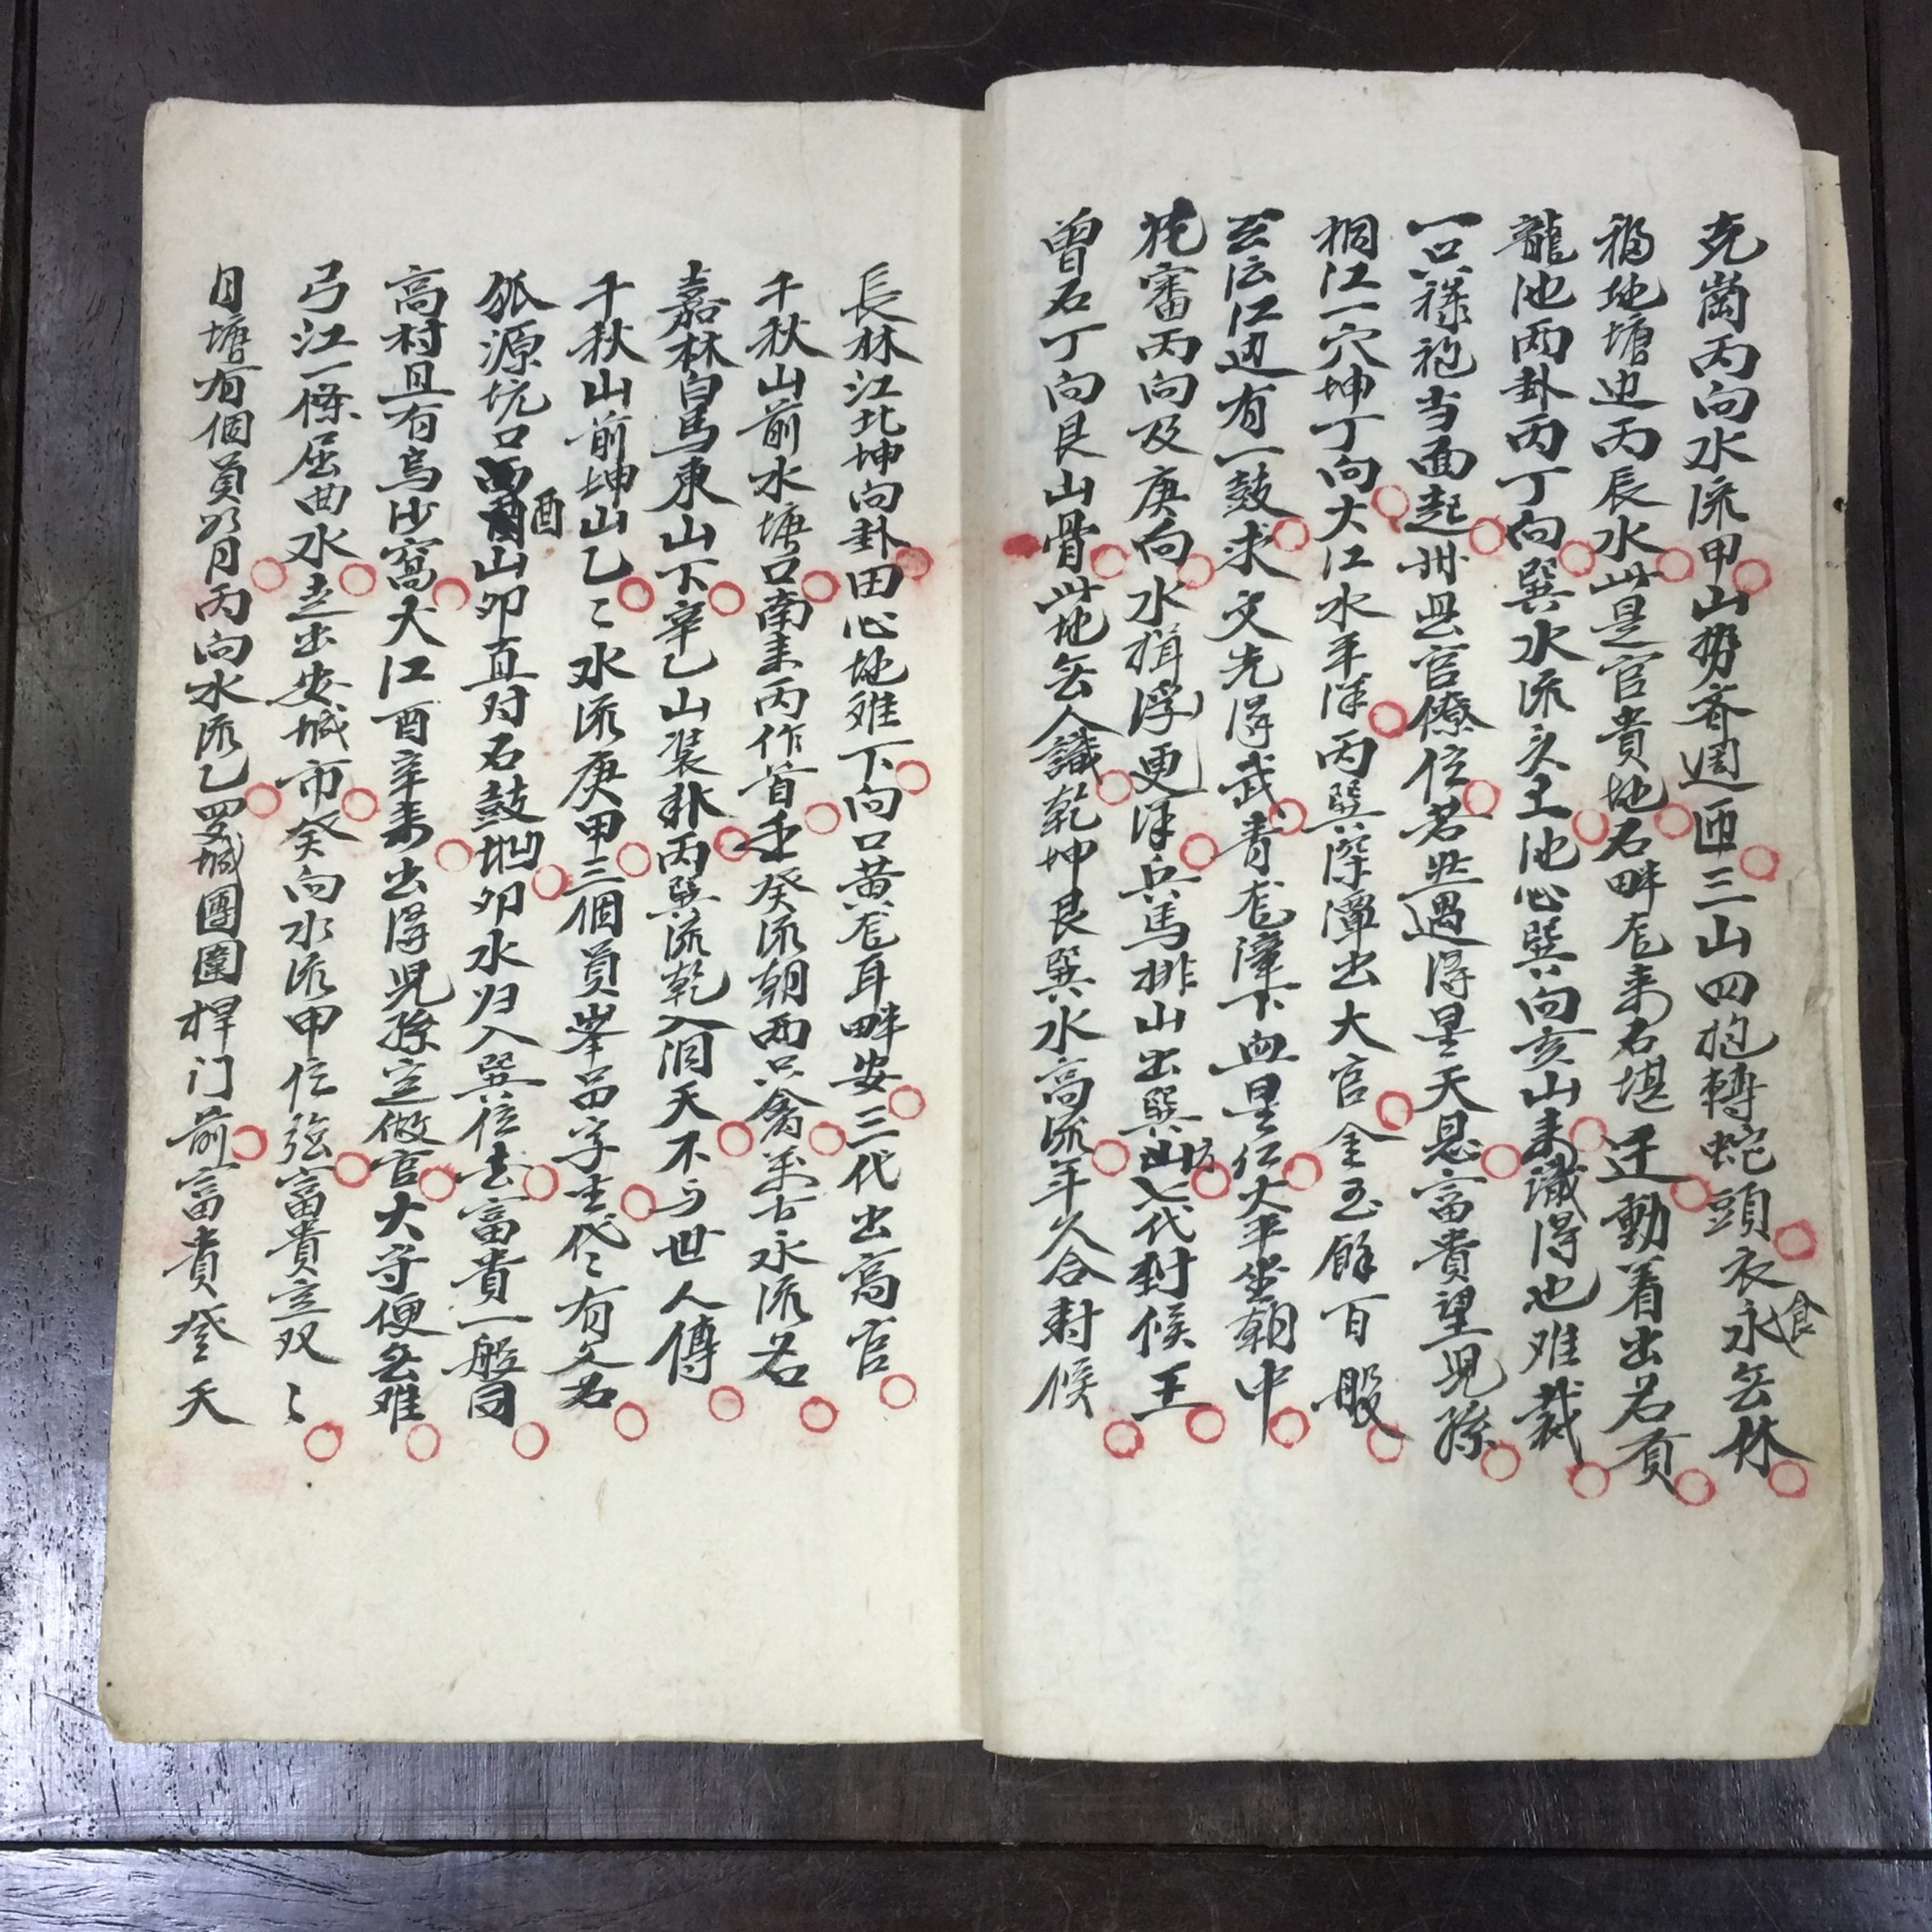 克崗丙向水流甲山势齐週匝三山四抱轉蛇頭衣食永無休
福地塘边丙辰水此是官貴地右畔龙来名堪迁動着出名賢
龍池两卦丙丁向巽水流久土池心巽向亥山来識得也难裁
一口祿袍当面起州县官僚位若些遇得星天恩富貴望児孫
桐江一穴坤丁向大江水平洋丙巽深潭出大官金玉餘百般
云江边有一鼓求文光浔武青龙潭下血星位太平坐朝中
花審丙向及庚向水揖浮更洋兵馬排山出巽方七代封候王
曾石丁向艮山骨此地無人識乾坤艮巽水高流年久合封候
長林江北坤向卦田心地难下向口黄龙耳畔安三代出高官
千秋山前水塘口南来丙作首壬癸流朝两只禽萬古永流名
嘉林白馬東山下辛乙山裝卦丙巽流乾入洞天不与世人傳
千秋山前坤山乙乙水流庚甲三個員峯品字生代代有久名
狐源坑口酉山卯直对石鼓坳卯水归入巽位去富貴一般同
高村且有烏沙窩大江酉辛来出得児孫定做官大守便無难
弓江一條屈曲水走出安城市癸向水流甲位強富貴立双双
月塘有個員如月丙向水流乙罗城團圍桿门前富貴登天